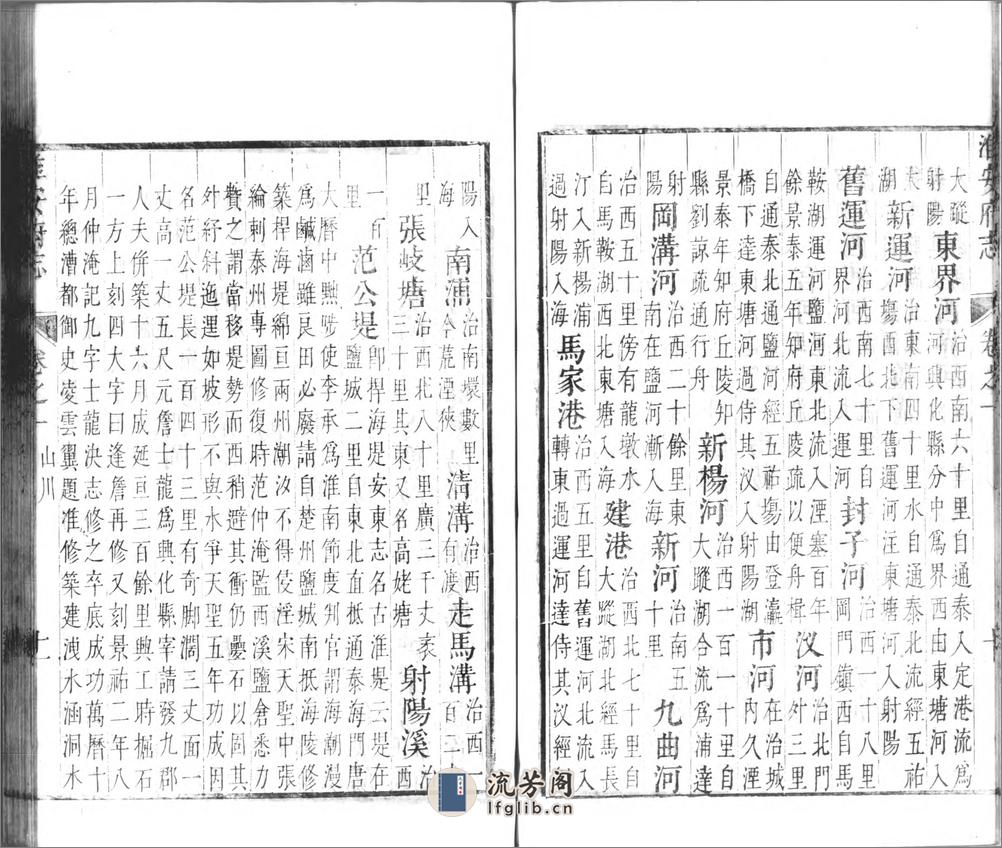 淮安府志　卷之一
大蹤
射陽
東界河
治西南六十里自通泰入定港流爲
河與化縣分中爲界西由東塘河入
大
湖
新運河
治東南四十里水自泰北流經五祐
場西北下舊運河汪東塘入射陽
舊運河
治西七十里自
界河北流入運河
封子河
治西一十八里
岡門鎮西自馬
鞍湖運河東北流入湮塞百年
餘景泰五年知府丘陵疏以便舟楫
汊河
治北門
外三里
自通泰北鹽河經五祐塲由登瀛
橋下達東塘河過侍其汊入射陽湖
市河
在治城
河內久湮
景泰年知府丘陵知
縣劉諒疏通行舟
新楊河
治西一百一十里自
大蹤湖合流爲浦達
射
陽
岡溝河
治西二十餘里東
南在鹽河漸入海
新河
治南五
十里
九曲河
治西五十里傍有龍墩水
自馬鞍湖西北東塘入海
建港
治西北七十里自
大蹤湖北馬長
汀入新楊浦
過射陽入海
馬家港
治西五里自舊運河北流入
轉東過運河達侍其汊經入
陽入
海
南浦
治南環數里
湮狹
清溝
治西
有漊
走馬溝
治西一
百二十
里
張岐塘
治西北八十里廣三千丈袤
三十里其東又名高姥塘
射陽溪
治
西
一百
里
范公堤
即捍海堤安東志名古淮堤云堤在
鹽城二里自東北直抵通泰海門唐
大曆中黜陟使李承爲淮南節度判官謂海潮漫
爲鹹鹵雖良田必廢請自楚州鹽城南抵海陵修
築捍海堤綿亘兩州潮汐不得侵淫宋天聖中張
綸刺泰州專圖修復時范仲淹監西溪鹽倉悉力
贊之謂當移堤勢而西稍避其衝仍疊石以固其
外紓斜迤邐如坡形不與水爭天聖五年功成因
名范公堤長一百四十三里有奇脚濶三丈面一
丈高一丈五尺元詹士龍爲興化縣宰請發九郡
人夫併築十六月成延亘三百餘里興工時掘石
一方上刻四大字曰逢詹再修又刻景祐二年八
月仲淹記九字士龍決志修之卒底成功萬曆十
年總漕都御史凌雲翼題准修築建洩水涵洞水
淮安府志　卷之一　山川　十一
流芳阁
lfglib.cn